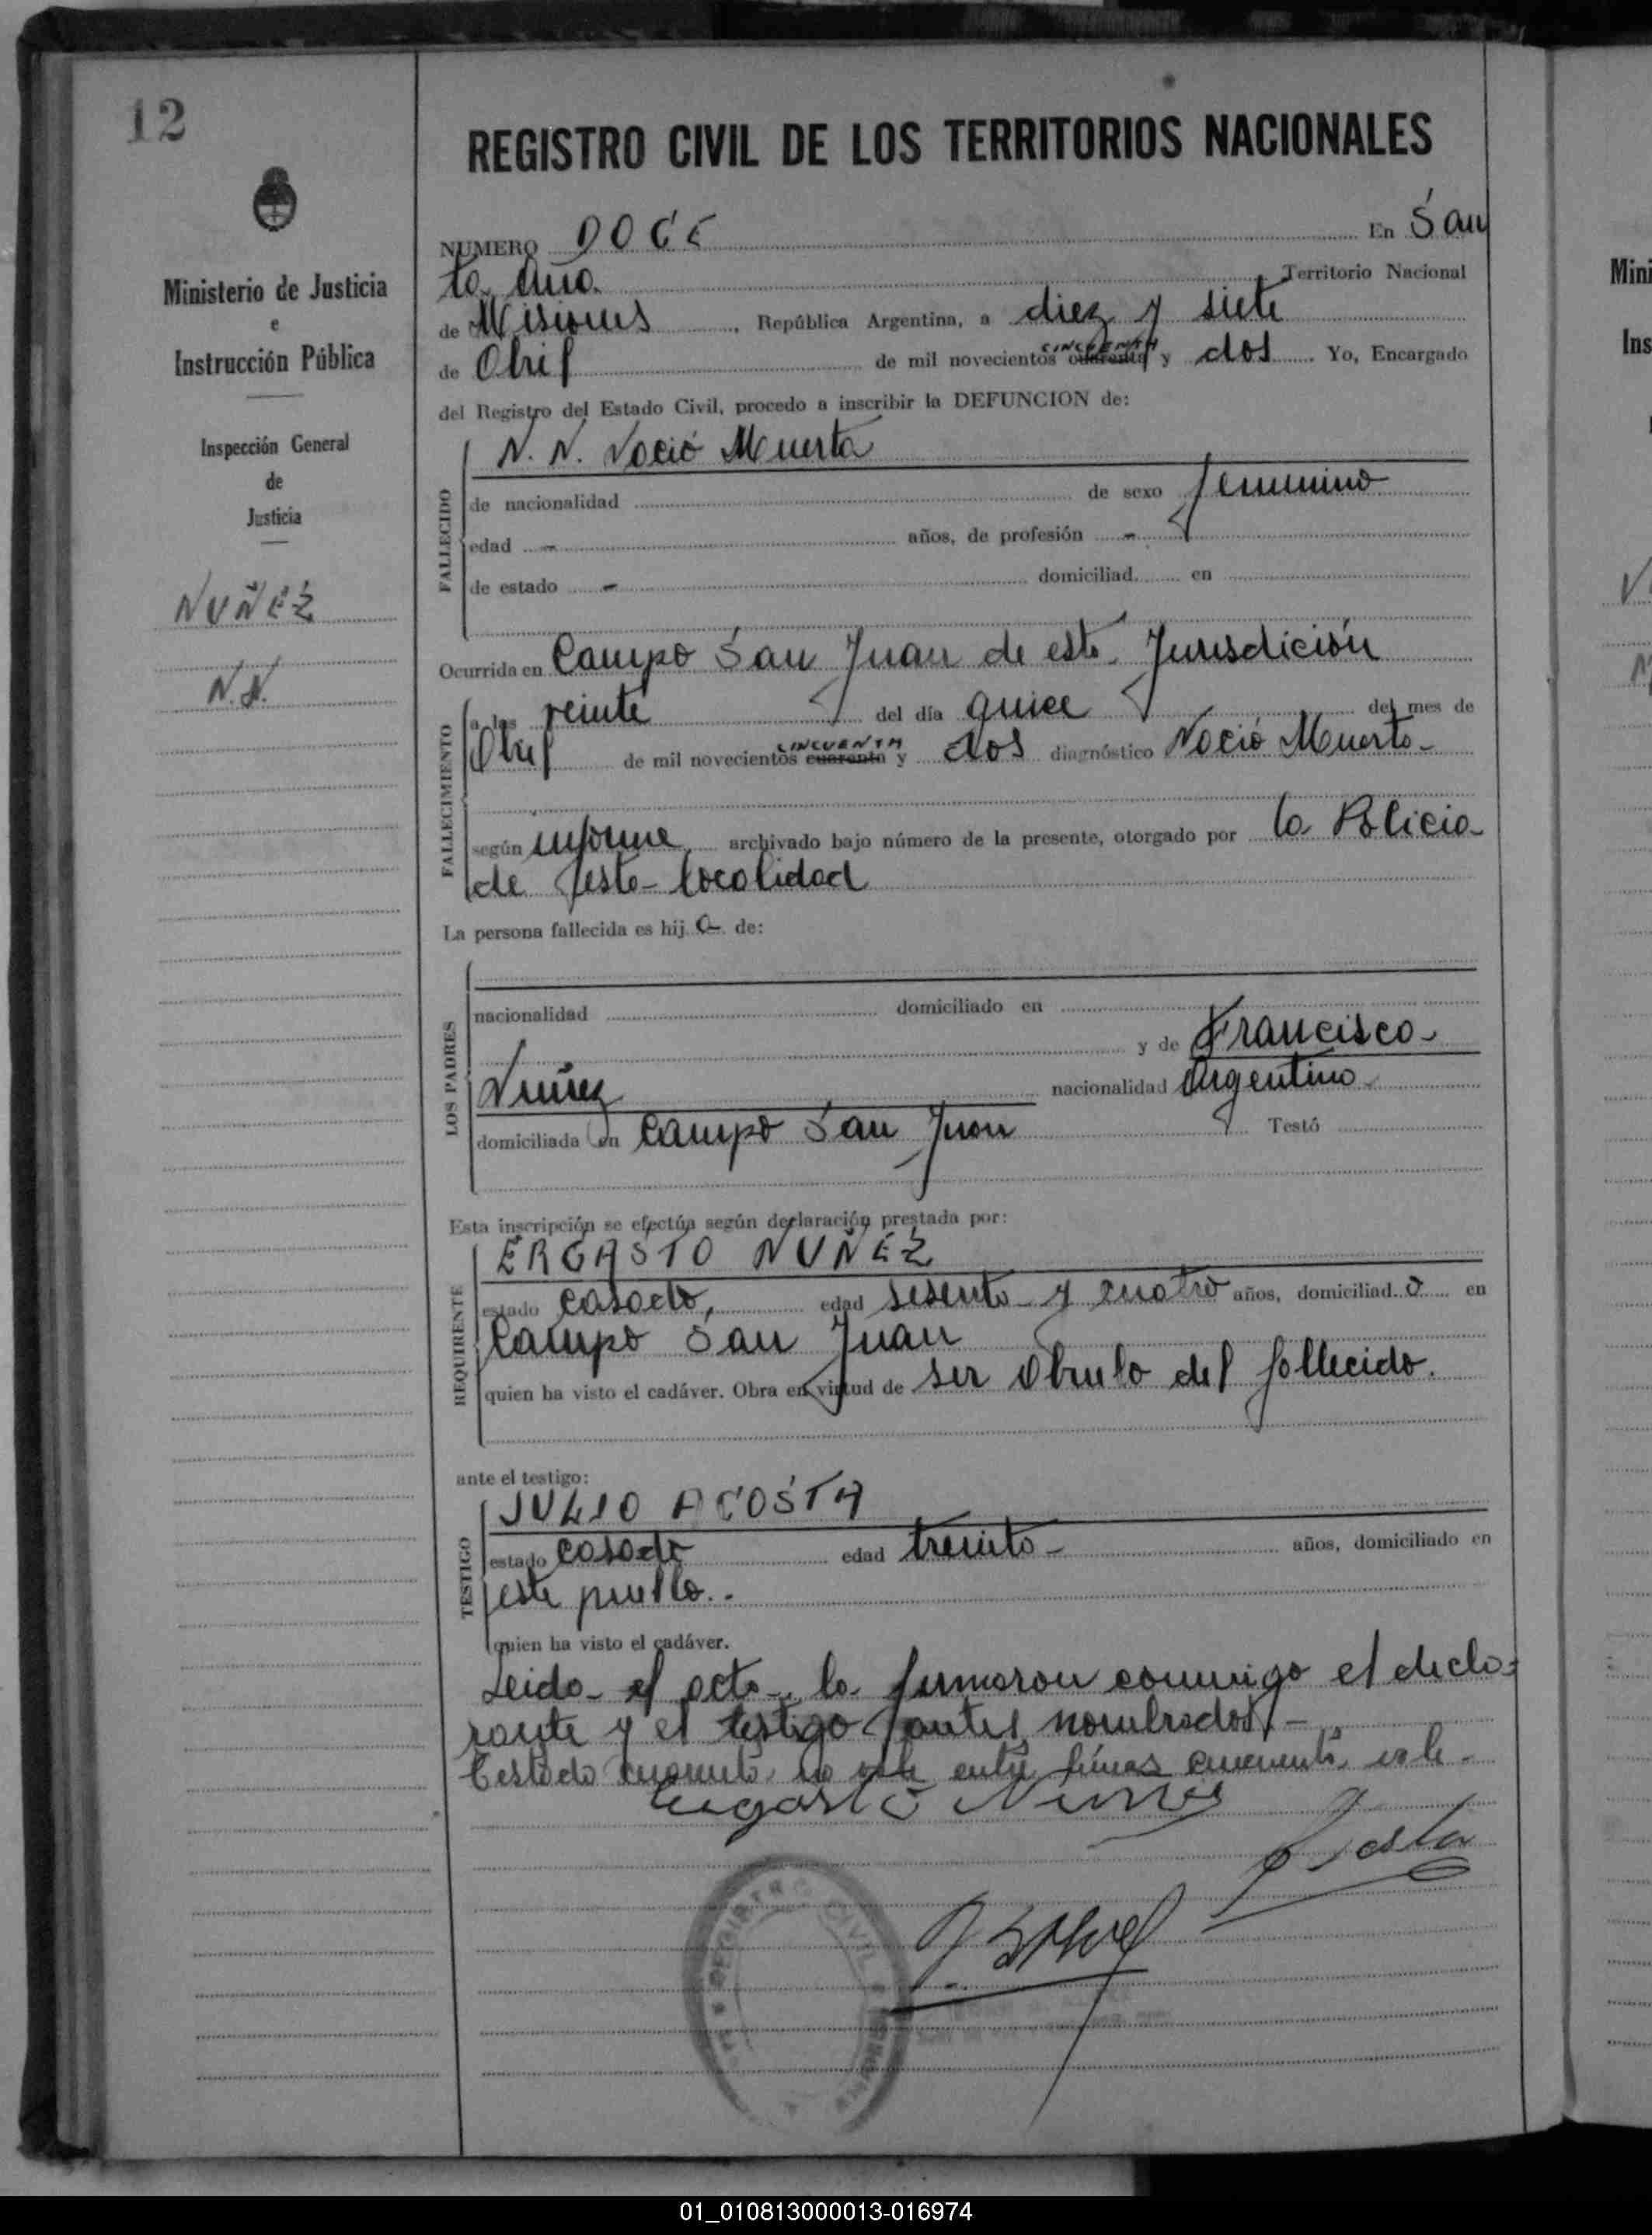 12
REGISTRO CIVIL DE LOS TERRITORIOS NACIONALES
Ministerio de Justicia
e
Instrucción Pública
Inspección General
de
Justicia
NUÑEZ
N.N.
NUMERO DOCE En San
ta Ana. Territorio Nacional
de Misiones, República Argentina, a diez y siete
de Abril de mil novecientos cuarenta CINCUENTA y dos Yo, Encargado
del Registro del Estado Civil, procedo a inscribir la DEFUNCION de:
FALLECIDO
N. N. Nació Muerta
de nacionalidad de sexo femenino
edad - años, de profesión -
de estado - domiciliad en
Ocurrida en Campo San Juan de esta Jurisdición
FALLECIMIENTO
a las veinte del día quice del mes de
Abril de mil novecientos cuarenta CINCUENTA y dos diagnóstico Nació Muerta-
según informe archivado bajo número de la presente, otorgado por la Policia
de esta localidad
La persona fallecida es hij a de:
LOS PADRES
nacionalidad domiciliado en
y de Francisca
Nuñez nacionalidad Argentina
domiciliada en Campo San Juan Testó
Esta inscripción se efectúa según declaración prestada por:
REQUIRENTE
ERGASTO NUÑEZ
estado casado, edad sesenta y cuatro años, domiciliad o en
Campo San Juan
quien ha visto el cadáver. Obra en virtud de ser Abuelo del fallecido.
ante el testigo:
TESTIGO
JULIO ACOSTA
estado casado edad treinta - años, domiciliado en
este pueblo..
quien ha visto el cadáver.
Leida el acta la firmaron conmigo el decla-
rante y el testigo antes nombrados.-
Testado cuarenta no vale entre lineas cincuenta vale.
Ergasto Nuñez
REGISTRO CIVIL
01_010813000013-016974